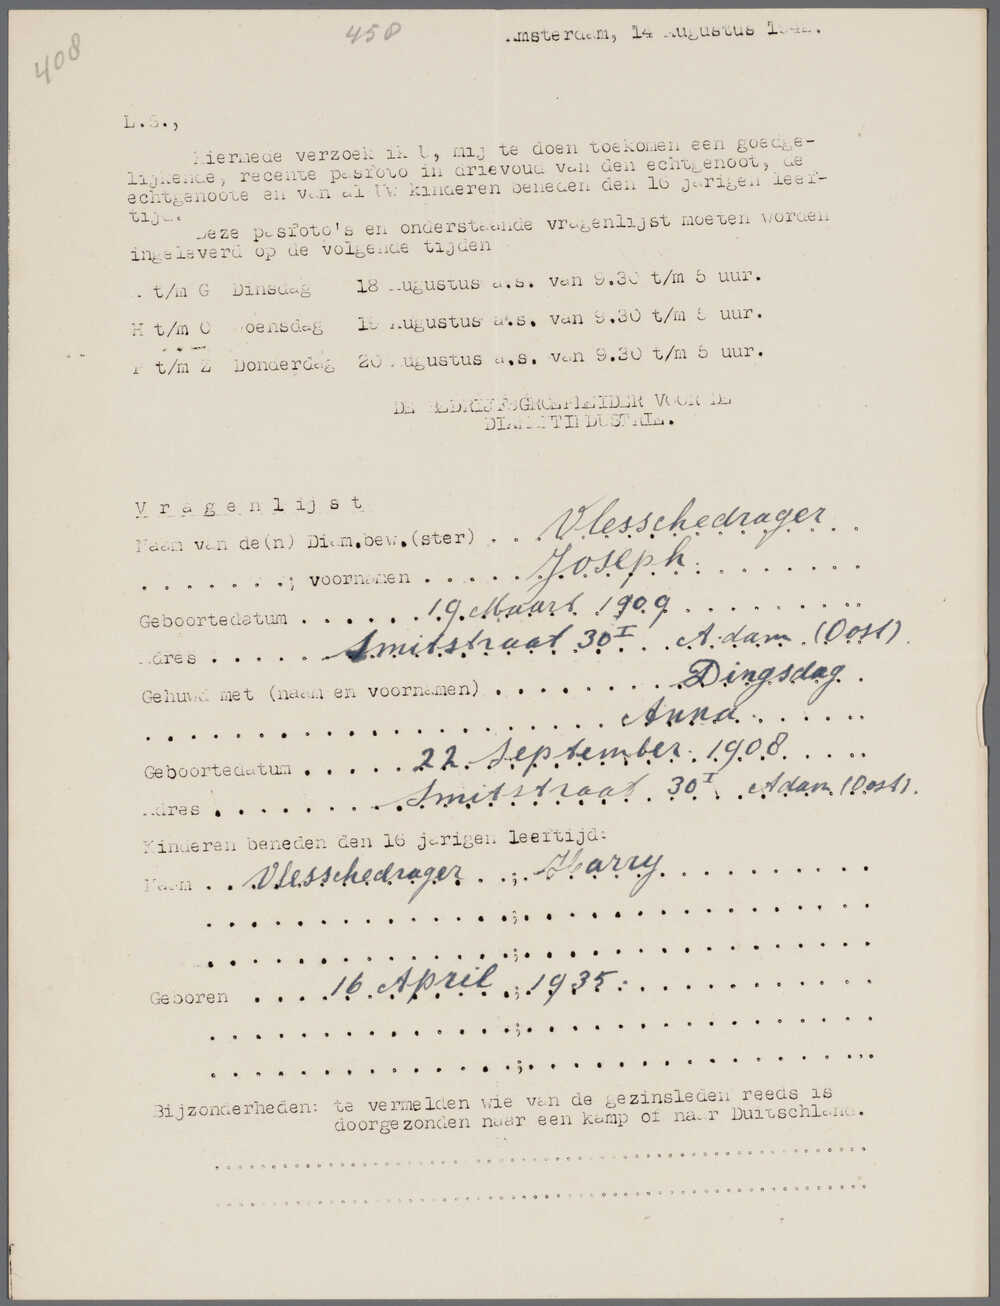 408
458
Amsterdam, 14 Augustus 1942.
L.S.,
Hiermede verzoek ik U, mij te doen toekomen een goedge-
lijkende, recente pasfoto in drievoud van den echtgenoot, de
echtgenoote en van al Uw kinderen beneden den 16 jarigen leef-
tijd.
Deze pasfoto's en onderstaande vragenlijst moeten worden
ingeleverd op de volgende tijden
A t/m G Dinsdag 18 Augustus a.s. van 9.30 t/m 5 uur.
H t/m O Woensdag 19 Augustus a.s. van 9.30 t/m 5 uur.
P t/m Z Donderdag 20 Augustus a.s. van 9.30 t/m 5 uur.
DE BEDRIJFSGROEPLEIDER VOOR DE
DIAMANTINDUSTRIE.
Vragenlijst
Naam van de(n) Diam.bew.(ster) . . Vlesschedrager .
. . . . . . . ; voornamen . . . . . Joseph . . . . . . .
Geboortedatum . . . . . . 19 Maart 1909 . . . . . . . . .
Adres . . . . . . Smitstraat 30 I A.dam (Oost).
Gehuwd met (naam en voornamen) . . . . . . . . Dingsdag .
. . . . . . . . . . . . . . . . . . . . . Anna . . . . . .
Geboortedatum . . . . . 22 September 1908 . . . . .
Adres . . . . . . . . Smitstraat 30 I Adam (Oost).
Kinderen beneden den 16 jarigen leeftijd:
Naam . . Vlesschedrager . . ; Harry . . . . . . . . . .
. . . . . . . . . . . . . . ; . . . . . . . . . . . . . . .
. . . . . . . . . . . . . . ; . . . . . . . . . . . . . . .
Geboren . . . . 16 April . ; 1935 . . . . . . . . . . .
. . . . . . . . . . . . . . ; . . . . . . . . . . . . . . .
. . . . . . . . . . . . . . ; . . . . . . . . . . . . . . .
Bijzonderheden: te vermelden wie van de gezinsleden reeds is
doorgezonden naar een kamp of naar Duitschland.
. . . . . . . . . . . . . . . . . . . . . . . . . . . . . .
. . . . . . . . . . . . . . . . . . . . . . . . . . . . . .